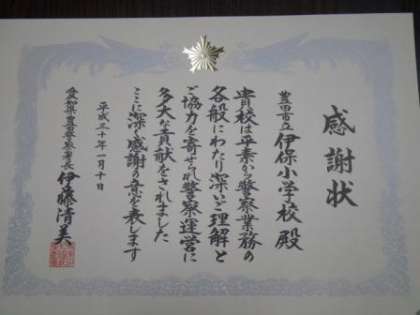 感謝状
豊田市立
伊保小学校 殿
貴校は平素から警察業務の
各般にわたり深いご理解と
ご協力を寄せられ警察運営に
多大な貢献をされました
ここに深く感謝の意を表します
平成三十年一月十日
愛知県豊田警察署長 伊藤清美